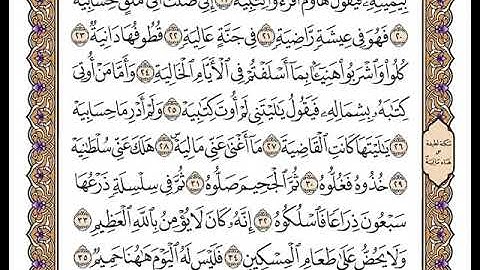 بِيَمِينِهِۦ فَيَقُولُ هَآؤُمُ ٱقۡرَءُواْ كِتَٰبِيَهۡ ١٩ إِنِّي ظَنَنتُ أَنِّي مُلَٰقٍ حِسَابِيَهۡ
٢٠ فَهُوَ فِي عِيشَةٖ رَّاضِيَةٖ ٢١ فِي جَنَّةٍ عَالِيَةٖ ٢٢ قُطُوفُهَا دَانِيَةٞ ٢٣
كُلُواْ وَٱشۡرَبُواْ هَنِيٓـَٔۢا بِمَآ أَسۡلَفۡتُمۡ فِي ٱلۡأَيَّامِ ٱلۡخَالِيَةِ ٢٤ وَأَمَّا مَنۡ أُوتِيَ
كِتَٰبَهُۥ بِشِمَالِهِۦ فَيَقُولُ يَٰلَيۡتَنِي لَمۡ أُوتَ كِتَٰبِيَهۡ ٢٥ وَلَمۡ أَدۡرِ مَا حِسَابِيَهۡ
٢٦ يَٰلَيۡتَهَا كَانَتِ ٱلۡقَاضِيَةَ ٢٧ مَآ أَغۡنَىٰ عَنِّي مَالِيَهۡۜ ٢٨ هَلَكَ عَنِّي سُلۡطَٰنِيَهۡ
٢٩ خُذُوهُ فَغُلُّوهُ ٣٠ ثُمَّ ٱلۡجَحِيمَ صَلُّوهُ ٣١ ثُمَّ فِي سِلۡسِلَةٖ ذَرۡعُهَا
سَبۡعُونَ ذِرَاعٗا فَٱسۡلُكُوهُ ٣٢ إِنَّهُۥ كَانَ لَا يُؤۡمِنُ بِٱللَّهِ ٱلۡعَظِيمِ ٣٣
وَلَا يَحُضُّ عَلَىٰ طَعَامِ ٱلۡمِسۡكِينِ ٣٤ فَلَيۡسَ لَهُ ٱلۡيَوۡمَ هَٰهُنَا حَمِيمٞ ٣٥
سكتة لطيفة
هاء ماليه